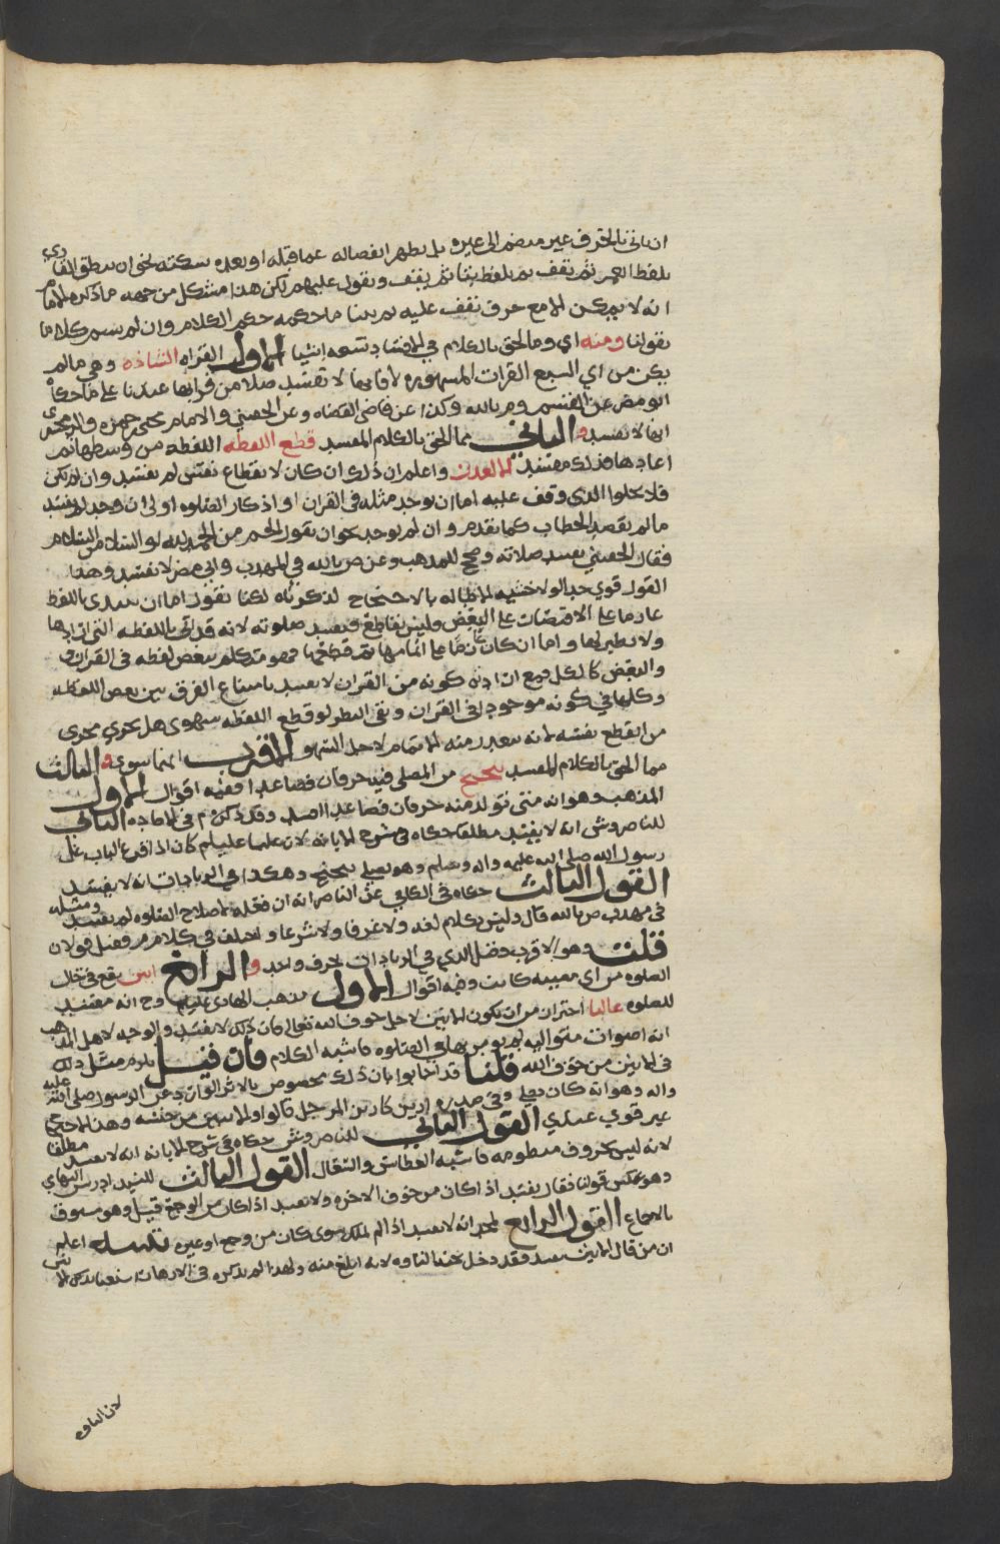 ان ياتي بالحرف غير منضم الى غيره بل يظهر انفصاله عما قبله او بعده بسكته نحو ان ينطق القاري
بلفظ ثم يقف ثم يلفظ ثم يقف ونقول عليهم لكن هذا مشكل من جهه ما ذكره الامام
انه لا يمكن الا مع حرف نقف عليه حكمه حكم الكلام وان لم يسم كلاما
بقولنا ومنه اي وما الحق بالكلام في الافساد تسعه اشيا الاول القراه الشاذه وهي مالم
يكن من اي السبع القرات المشهوره لا فانها لا تفسد صلاه من قرا بها عندنا على ما حكاه
ابو مضر عن القسم وم بالله وكذا عن قاضي القضاه وعن الحقيني والامام يحيى حمزه والزمخشري
انها لا تفسد و الثاني مما الحق بالكلام المفسد قطع اللفظه اللفظه من وسطها ثم
اعادها فذلك مفسد الا لعذر واعلم ان ذلك ان كان لانقطاع نفس لم يفسد وان لم يكن
فلا يخلوا الذي وقف عليه اما ان يوجد مثله في القران او اذكار الصلوه او لا ان وجد لم يفسد
مالم يقصد الخطاب كما تقدم وان لم يوجد نحو ان يقول الحم من الحمد لله او السلا من السلام
فقال الحقيني يفسد صلاته وصحح للمذهب وعن ص بالله في المهذب وابي مضر لا تفسد وهذا
القول قوي جدا لولا خشيه الاطاله بالاحتجاج لذكرناه لكنا نقول اما ان يبتدي باللفظ
عازما على الاقتصار على البعض وليس بقاطع فيفسد صلوته لانه قد اتى باللفظه التي ارادها
ولا نظير لها واما ان كان عازما على اتمامها ثم قطعها فهو متكلم ببعض لفظه في القران
والبعض كالكل في كونه من القران لا يفسد لامتناع الفرق بين بعض اللفظه
وكلها في كونه موجود في القران وبقي النظر لو قطع اللفظه سهوى هل يجري مجرى
من انقطع نفسه لانه تعذر منه الاتمام لاجل السهو الاقرب انهما سوى و الثالث
مما الحق بالكلام المفسد تنحنح من المصلي فيه حرفان فصاعدا ففيه اقوال الاول
المذهب وهو انه متى تولد منه حرفان فصاعدا افسد وقد ذكره م في الافاده الثاني
للناصر وش انه لا يفسد مطلقا حكاه في شرح الابانه لان عليا عليلم كان اذا قرع الباب على
رسول الله صلى الله عليه واله وسلم وهو يصلي تنحنح وهكذا في الزيادات انه لا يفسد
القول الثالث حكاه في الكافي عن الناصر انه ان فعله لاصلاح الصلوه لم يفسد ومثله
في مهذب ص بالله قال وليس بكلام لغه ولا عرفا ولا شرعا واختلف في كلام م فقيل قولان
قلت وهو الاقرب حصل الذي في الزيادات بحرف واحد و الرابع انين يقع في حال
الصلوه من اي مصيبه كانت وفيه اقوال الاول مذهب الهادي عليلم وح انه مفسد
للصلوه غالبا احترازا من ان يكون الانين لاجل خوف الله تعالى فان ذلك لا يفسد والوجه لاهل المذهب
انه اصوات متواليه لم يومر بها في الصلوه فاشبه الكلام فان قيل يلزم مثل ذلك
في الانين من خوف الله قلنا قد اجابوا بان ذلك مخصوص بالاثر الوارد عن الرسول صلى الله عليه
واله وهو انه كان يصلي وفي صدره ازيز كازيز المرجل قالوا والانين من جنسه وهذا الاحتجاج
غير قوي عندي القول الثاني للناصر وش حكاه في شرح الابانه انه لا يفسد مطلقا
لانه ليس بحروف منظومه فاشبه العطاس والسعال القول الثالث للسيد ادريس التهامي
وهو عكس قولنا فقال يفسد اذا كان من خوف الاخره ولا يفسد اذا كان من الوجع قيل وهو مسبوق
بالاجماع القول الرابع لمحمد انه لا يفسد اذا لم يملك سوى كان من وجع او غيره تنبيه اعلم
ان من قال الانين يفسد فقد دخل تحته التاوه لانه ابلغ منه ولهذا لم يذكره في الازهار استغنا بذكر الانين
لان التاوه